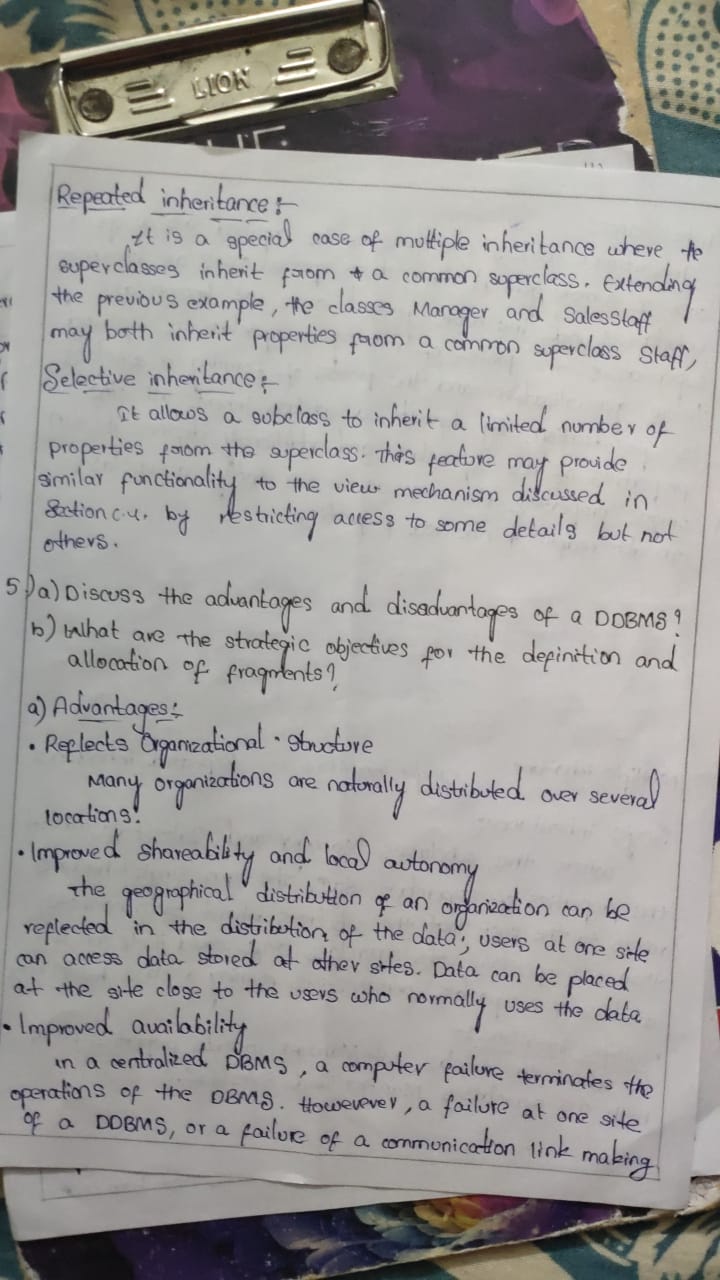 LION
Repeated inheritance :-
It is a special case of multiple inheritance where the
superclasses inherit from a common superclass. Extending
the previous example, the classes Manager and SalesStaff
may both inherit properties from a common superclass Staff,
Selective inheritance :-
It allows a subclass to inherit a limited number of
properties from the superclass. This feature may provide
similar functionality to the view mechanism discussed in
Section c.4. by restricting access to some details but not
others.
5) a) Discuss the advantages and disadvantages of a DDBMS?
b) What are the strategic objectives for the definition and
allocation of fragments?
a) Advantages :-
• Reflects Organizational structure
Many organizations are naturally distributed over several
locations.
• Improved shareability and local autonomy
The geographical distribution of an organization can be
reflected in the distribution of the data; users at one site
can access data stored at other sites. Data can be placed
at the site close to the users who normally uses the data
• Improved availability
in a centralized DBMS, a computer failure terminates the
operations of the DBMS. Howevever, a failure at one site
of a DDBMS, or a failure of a communication link making